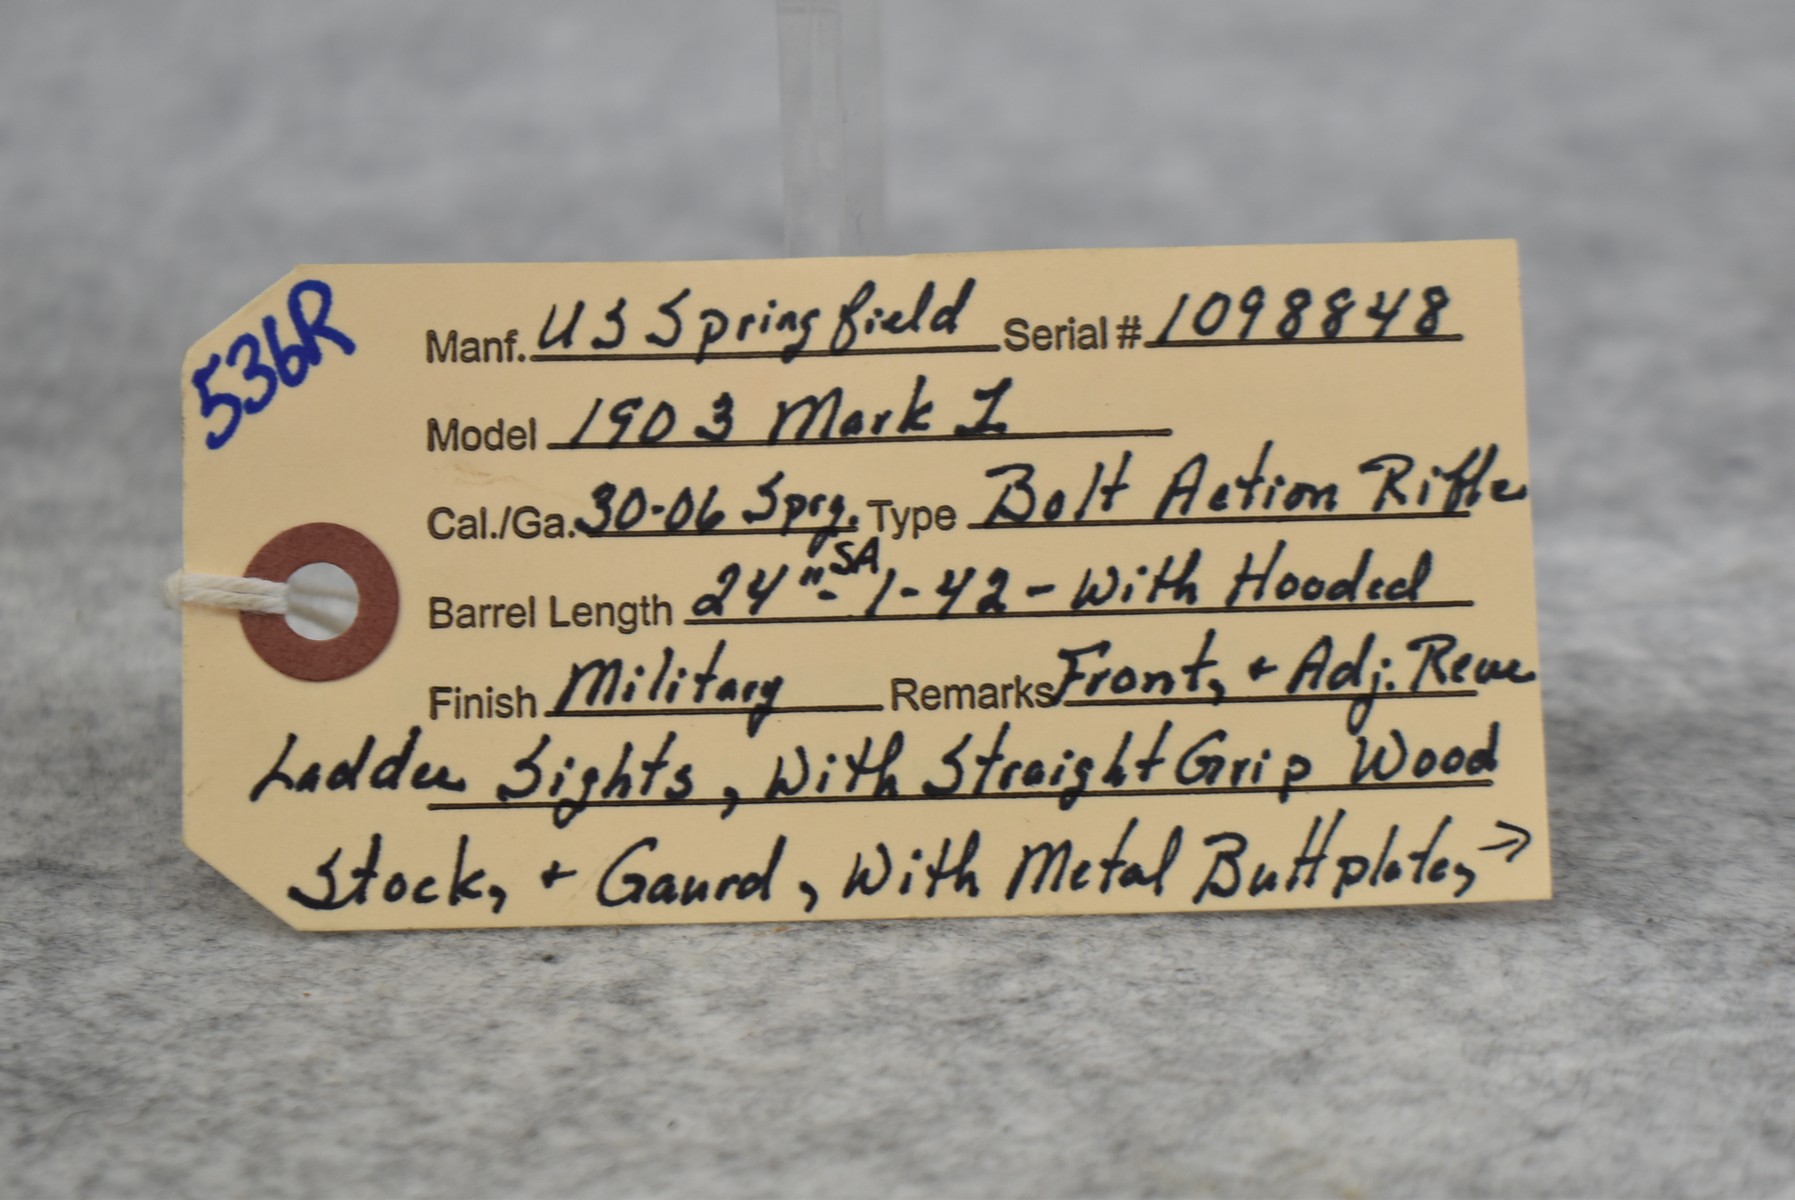 536R
Manf. US Springfield Serial # 1098848
Model 1903 Mark I
Cal./Ga. 30-06 Sprg. Type Bolt Action Rifle
Barrel Length 24"- SA 1-42 - With Hooded
Finish Military Remarks Front, + Adj. Rear
Ladder Sights, With Straight Grip Wood
Stock, + Gaurd, With Metal Buttplate, →